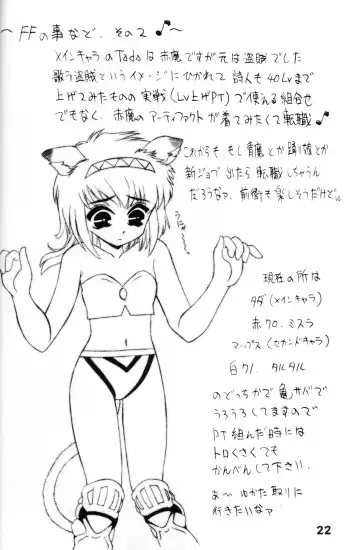 ～FFの事など、その2♪～
メインキャラのTadaは赤魔ですが元は盗賊でした
歌う盗賊というイメージにひかれて詩人も40Lvまで
上げてみたものの実戦(Lv上げPT)で使える組合せ
でもなく、赤魔のアーティファクトが着てみたくて転職♪
これからも、もし青魔とか踊り娘とか
新ジョブ出たら転職しちゃうん
だろうなァ、前衛も楽しそうだけど
うにゅ～
現在の所は
タダ(メインキャラ)
赤70、ミスラ
マップス(セカンドキャラ)
白71、タルタル
のどっちかで亀サバで
うろうろしてますので
PT組んだ時には
トロくさくても
かんべんして下さい。
あ～ゆかた取りに
行きたいなァ
22